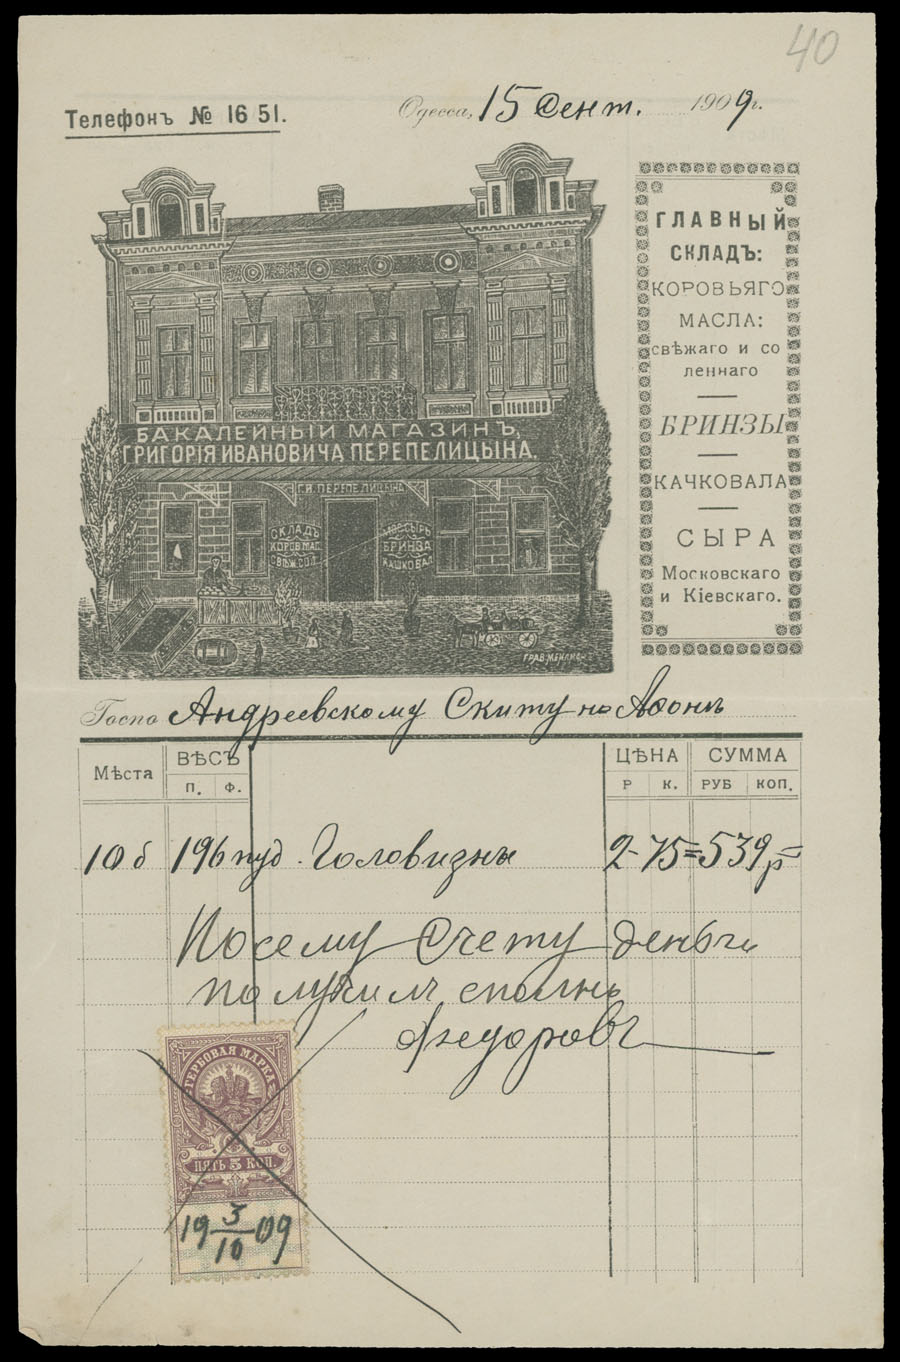 40
Телефонъ № 16 51.
Одесса, 15 Сент. 1909 г.
ГЛАВНЫЙ
СКЛАДЪ:
КОРОВЬЯГО
МАСЛА:
свѣжаго и со
леннаго
БРИНЗЫ
КАЧКОВАЛА
СЫРА
Московскаго
и Кіевскаго.
БАКАЛЕЙНЫЙ МАГАЗИНЪ,
ГРИГОРІЯ ИВАНОВИЧА ПЕРЕПЕЛИЦЫНА.
Г.И. ПЕРЕПЕЛИЦЫНА
СКЛАДЪ
КОРОВ МАС.
СВѢЖ СОЛ.
СЫРЪ
БРИНЗА
КАШКОВАЛ
ГРАВ.
Госпо Андреевскому Скиту на Афонѣ
Мѣста ВѢСЪ ЦѢНА СУММА
П. Ф. Р К. РУБ КОП.
10 б 196 пуд. Головизны 2-75=539 р
По сему счету деньги
получилъ сполнѣ
Федоровъ
ГЕРБОВАЯ МАРКА
ПЯТЬ 5 КОП.
19 3/10 09